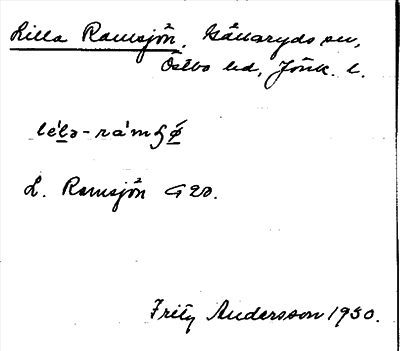 Lilla Ramsjön, Gällaryds sn,
Östbo hd, Jönk. l.
lélə-rámʂǿ
L. Ramsjön G 20.
Fritz Andersson 1930.